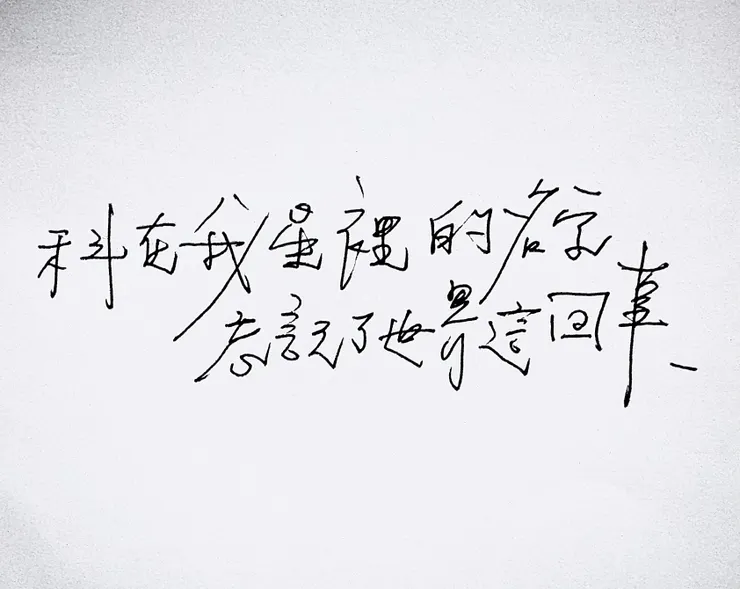 科在我星裡的名字
忘記了世界這回事、